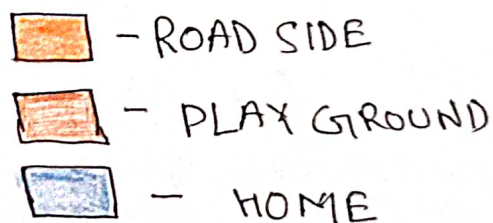 - ROAD SIDE
- PLAY GROUND
- HOME